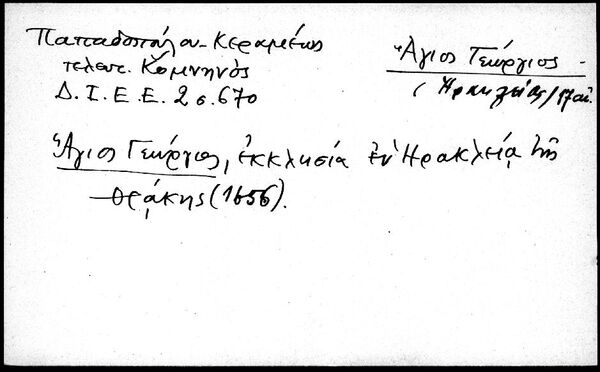 Παπαδοπούλου-Κεραμέως
τελευτ. Κομνηνός
Δ. Ι. Ε. Ε. 2 σ. 670
Ἅγιος Γεώργιος
(Ἡρακλείας/17αι.
Ἅγιος Γεώργιος, ἐκκλησία ἐν Ἡρακλείᾳ τῆς
Θράκης (1656).